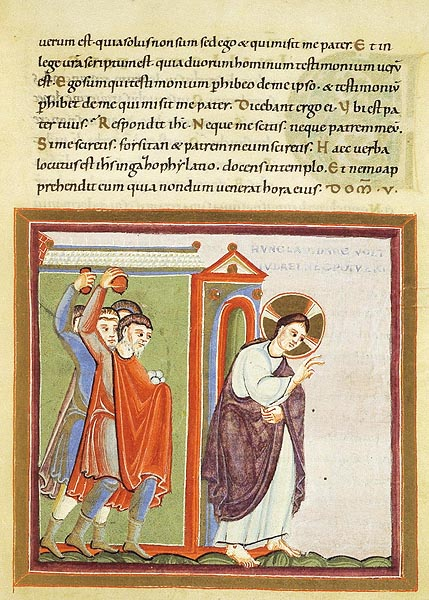 uerum est. quia solus non sum sed ego & qui misit me pater. Et in
lege ur̄a scriptum est. quia duorum hominum testimonium uerū
est. Ego sum qui testimonium p̱hibeo de me ipso. & testimoniū
p̱hib& de me qui misit me pater. Dicebant ergo ei. Vbi est pa
ter tuus. Respondit ih̄c. Neque me scitis. neque patrem meū.
Si me sciretis. forsitan & patrem meum sciretis. Haec uerba
locutus est ih̄s in gazophylatio. docens in templo. Et nemo ap
prehendit eum quia nondum uenerat hora eius. DOM̄. V.
HVNC LAPIDARE